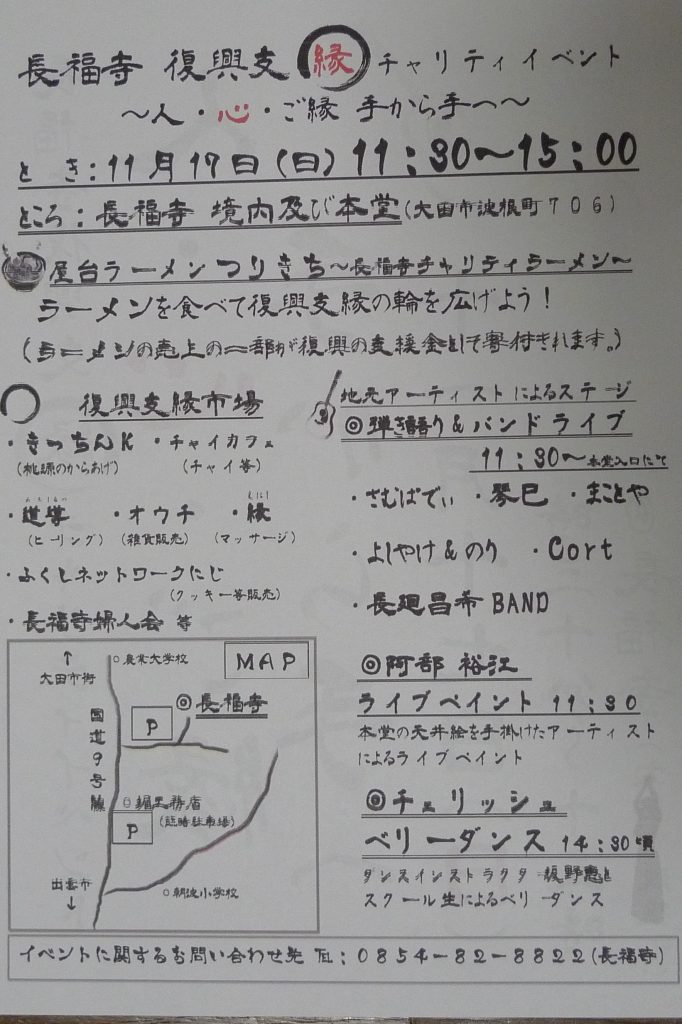 長福寺 復興支縁 チャリティイベント
〜人・心・ご縁 手から手へ〜
と き：11月17日（日）11：30〜15：00
ところ：長福寺 境内及び本堂（大田市波根町７０６）
屋台ラーメンつりきち〜長福寺チャリティラーメン〜
ラーメンを食べて復興支縁の輪を広げよう！
（ラーメンの売上の一部が復興の支援金として寄付されます。）
復興支縁市場
・きっちんK ・チャイカフェ
（桃源のからあげ） （チャイ等）
・道導 ・オウチ ・縁
（ヒーリング） （雑貨販売） （マッサージ）
・ふくしネットワークにじ
（クッキー等販売）
・長福寺婦人会 等
地元アーティストによるステージ
◎弾き語り＆バンドライブ
11：30〜本堂入口にて
・さむばでぃ ・琴巳 ・まことや
・よしやけ＆のり ・Cort
・長廻昌希 BAND
◎阿部 裕江
ライブペイント 11：30
本堂の天井絵を手掛けたアーティスト
によるライブペイント
◎チェリッシュ
ベリーダンス 14：30頃
ダンスインストラクタ 恵と
スクール生によるベリーダンス
↑
大田市街
○農業大学校
MAP
◎長福寺
P
国道9号線
P
（臨時駐車場）
出雲市
↓
○朝波小学校
イベントに関するお問い合わせ先 ℡：０８５４−８２−８８２２（長福寺）